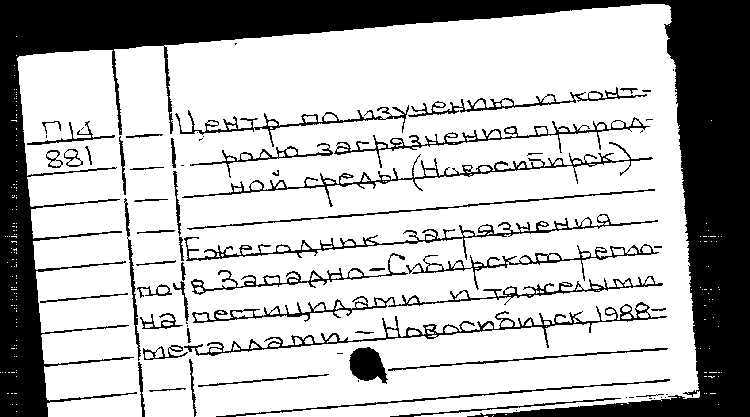 П14
881
Центр по изучению и конт-
ролю загрязнения природ-
ной среды (Новосибирск)
Ежегодник загрязнения
почв Западно-Сибирского регио-
на пестицидами и тяжелыми
металлами. - Новосибирск, 1988-